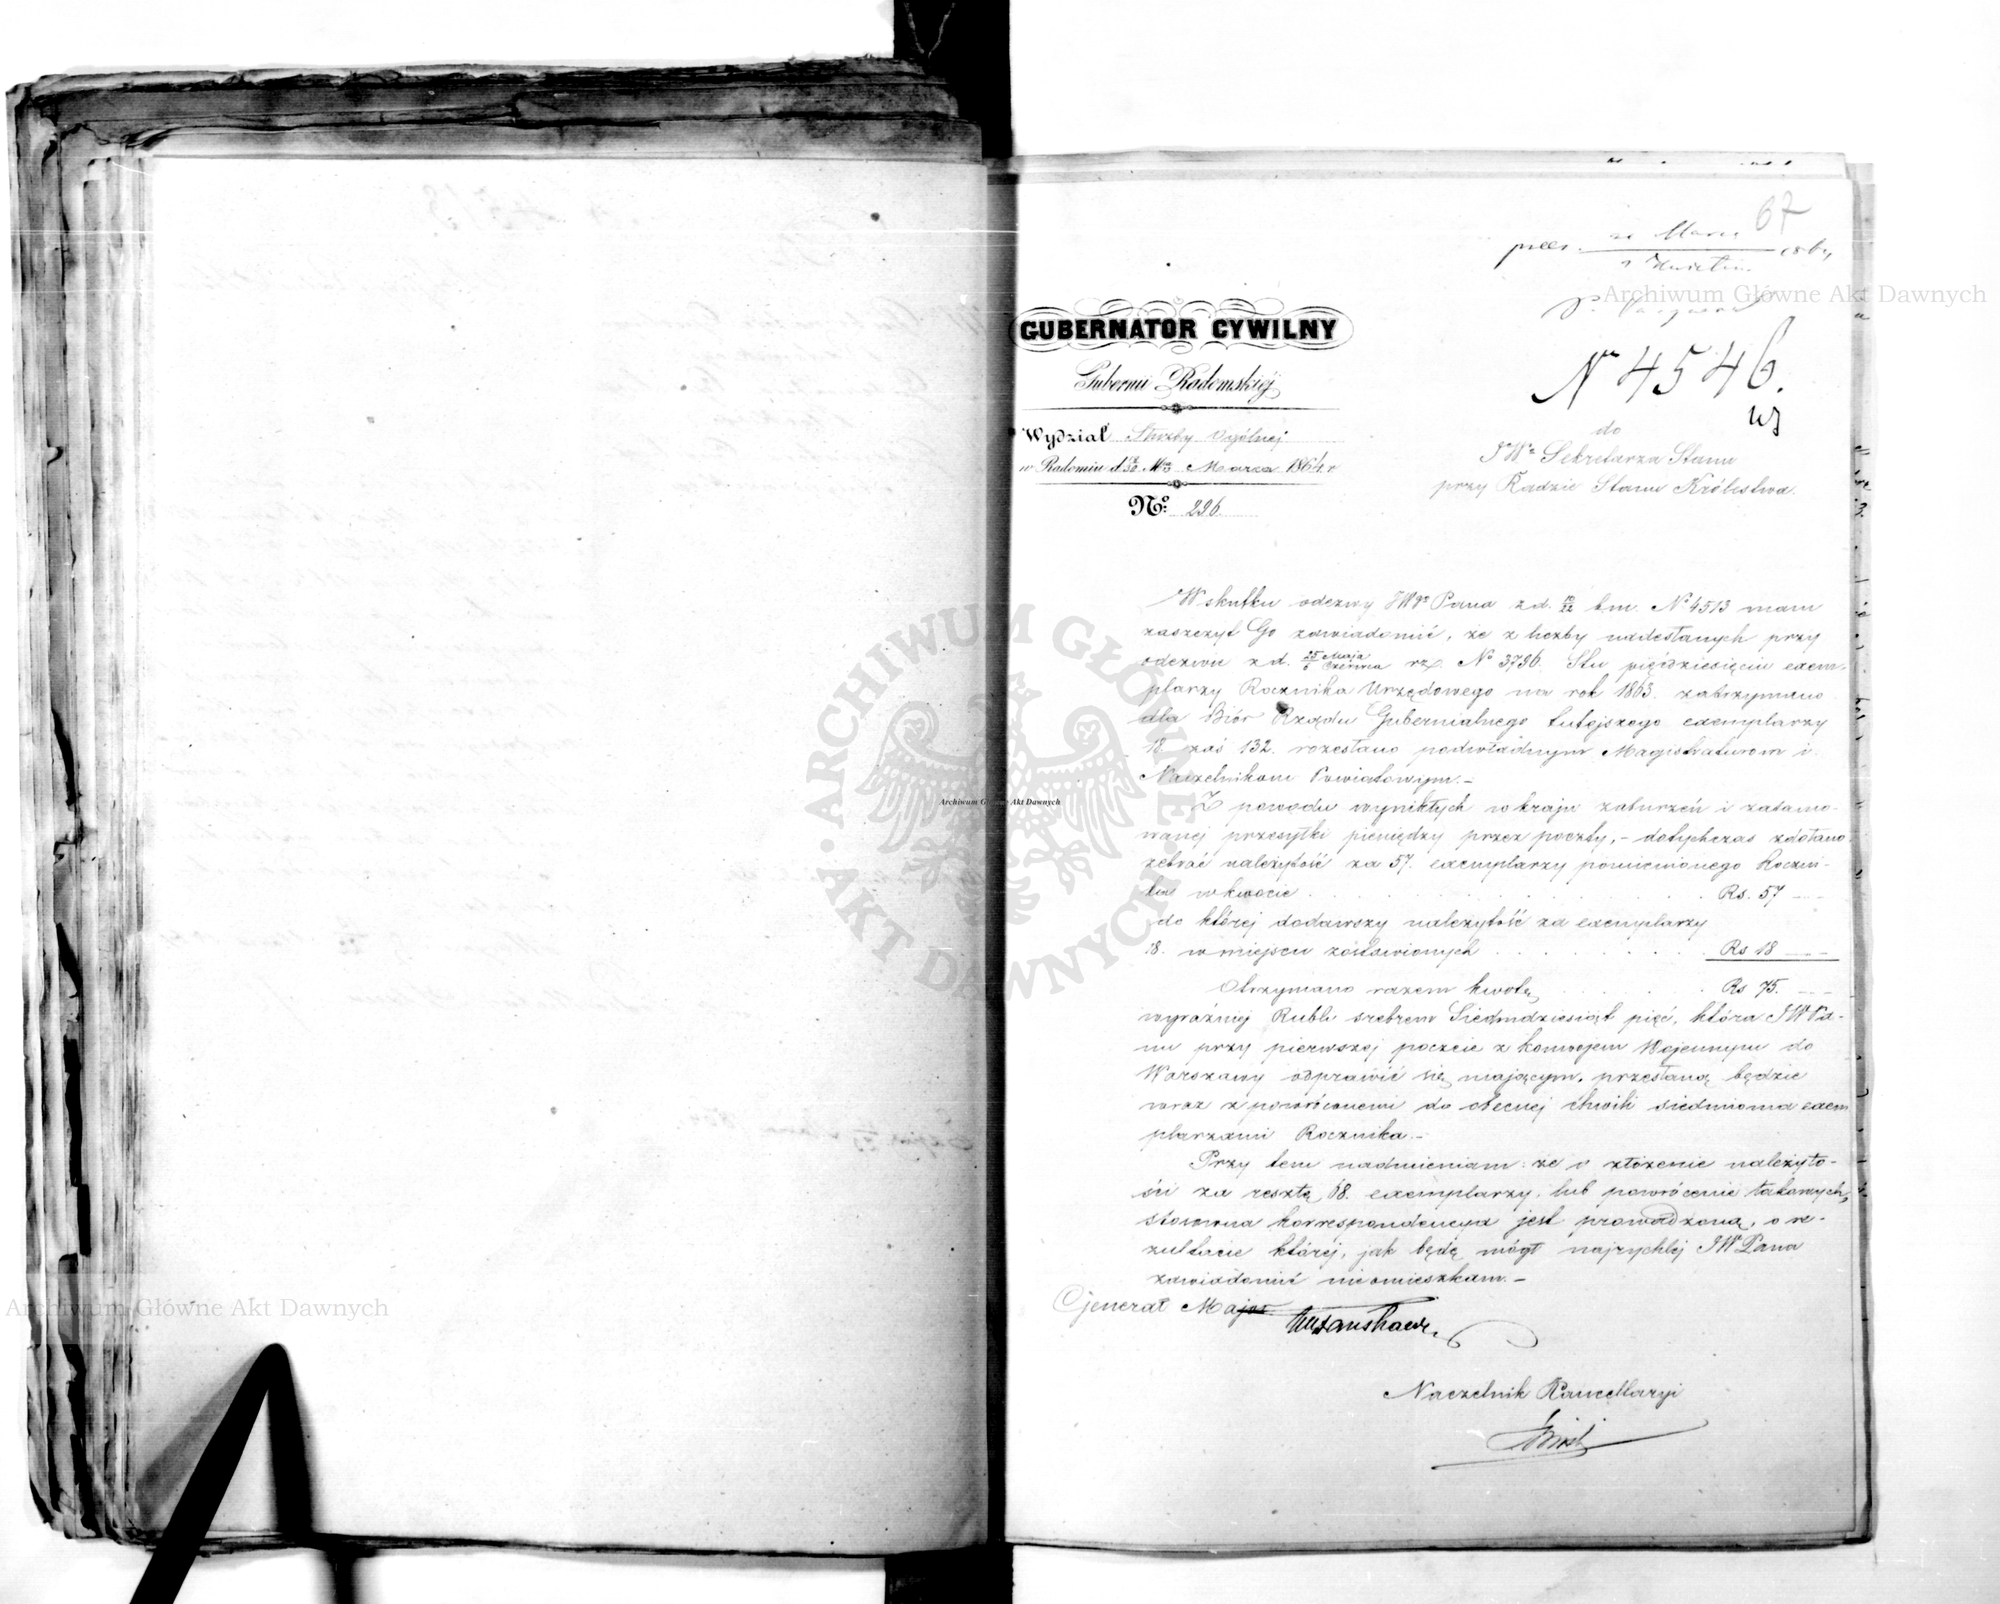 67
pres. 20 Marca / 1 Kwietnia 1864
Archiwum Główne Akt Dawnych
GUBERNATOR CYWILNY
Gubernii Radomskiéj
Wydział Służby Ogólnej
w Radomiu d. 18/30 Mca Marca 1864 r
No: 296.
No 4546.
do
JWo Sekretarza Stanu
przy Radzie Stanu Królestwa.
W skutku odezwy JWgo Pana z d. 10/22 b.m. No 4513 mam
zaszczyt Go zawiadomić, że z liczby nadesłanych przy
odezwie z d. 25 Maja / 6 Czerwca r.z. No 3796. Stu pięćdziesięciu exem-
plarzy Rocznika Urzędowego na rok 1863. zatrzymano
dla Biór Rządu Gubernialnego tutejszego exemplarzy
18. zaś 132. rozesłano podwładnym Magistraturom i
Naczelnikom Powiatowym.–
Z powodu wynikłych w kraju zaburzeń i zatamo-
wanej przesyłki pieniędzy przez poczty,– dotychczas zdołano
zebrać należytość za 57. exemplarzy pomienionego Roczni-
ka w kwocie . . . . . Rs. 57 –
do której dodawszy należytość za exemplarzy
18. w miejscu zostawionych . . . . . Rs 18 –
Otrzymano razem kwotę . . . . . Rs 75. –
wyraźniej Rubli srebrem Siedmdziesiąt pięć, która JW Pa-
nu przy pierwszej poczcie z konwojem Wojennym do
Warszawy odprawić się mającym, przesłaną będzie
wraz z powróconemi do obecnej chwili siedmioma exem
plarzami Rocznika.–
Przy tem nadmieniam: że o złożenie należyto-
ści za resztę 68. exemplarzy, lub powrócenie takowych,
stosowna korrespondencya jest prowadzoną, o re-
zultacie której, jak będę mógł najrychlej JW Pana
zawiadomić nieomieszkam.–
Generał Major
Naczelnik Kancellaryi
ARCHIWUM GŁÓWNE AKT DAWNYCH
Archiwum Główne Akt Dawnych
Archiwum Główne Akt Dawnych